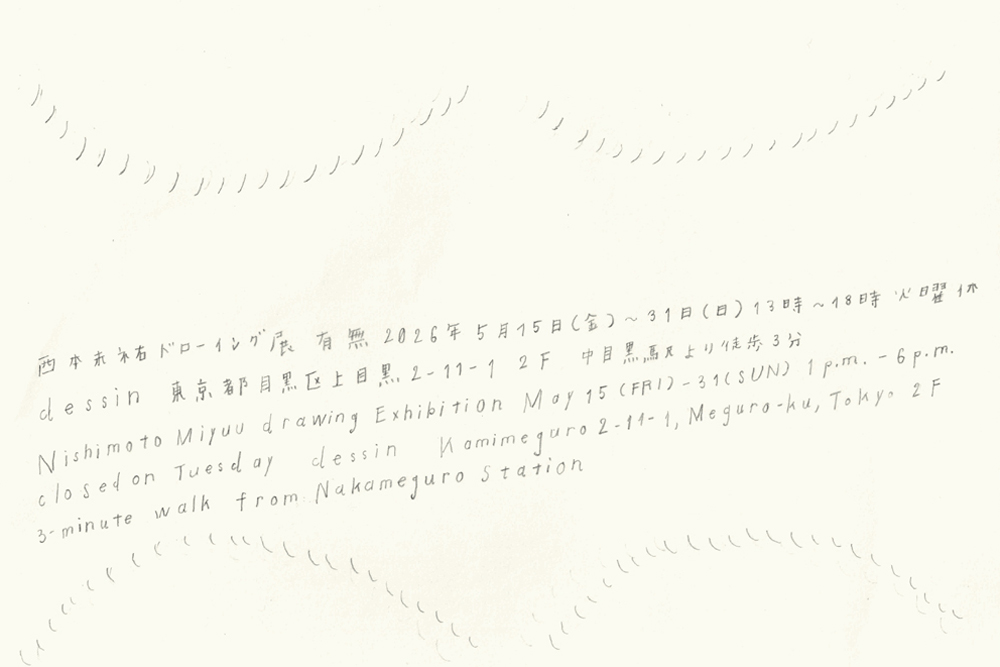 西本未祐ドローイング展 有無 2026年5月15日(金)~31日(日)13時~18時 火曜休
dessin 東京都目黒区上目黒2-11-1 2F 中目黒駅より徒歩3分
Nishimoto Miyuu drawing Exhibition May 15 (FRI)-31(SUN) 1p.m.-6p.m.
closed on Tuesday dessin Kamimeguro 2-11-1, Meguro-ku, Tokyo 2F
3-minute walk from Nakameguro Station